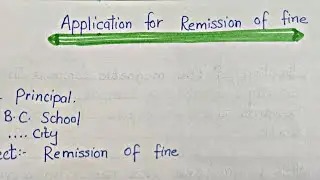 Application for Remission of fine
Principal.
B.C. School
.... City
ect:- Remission of fine